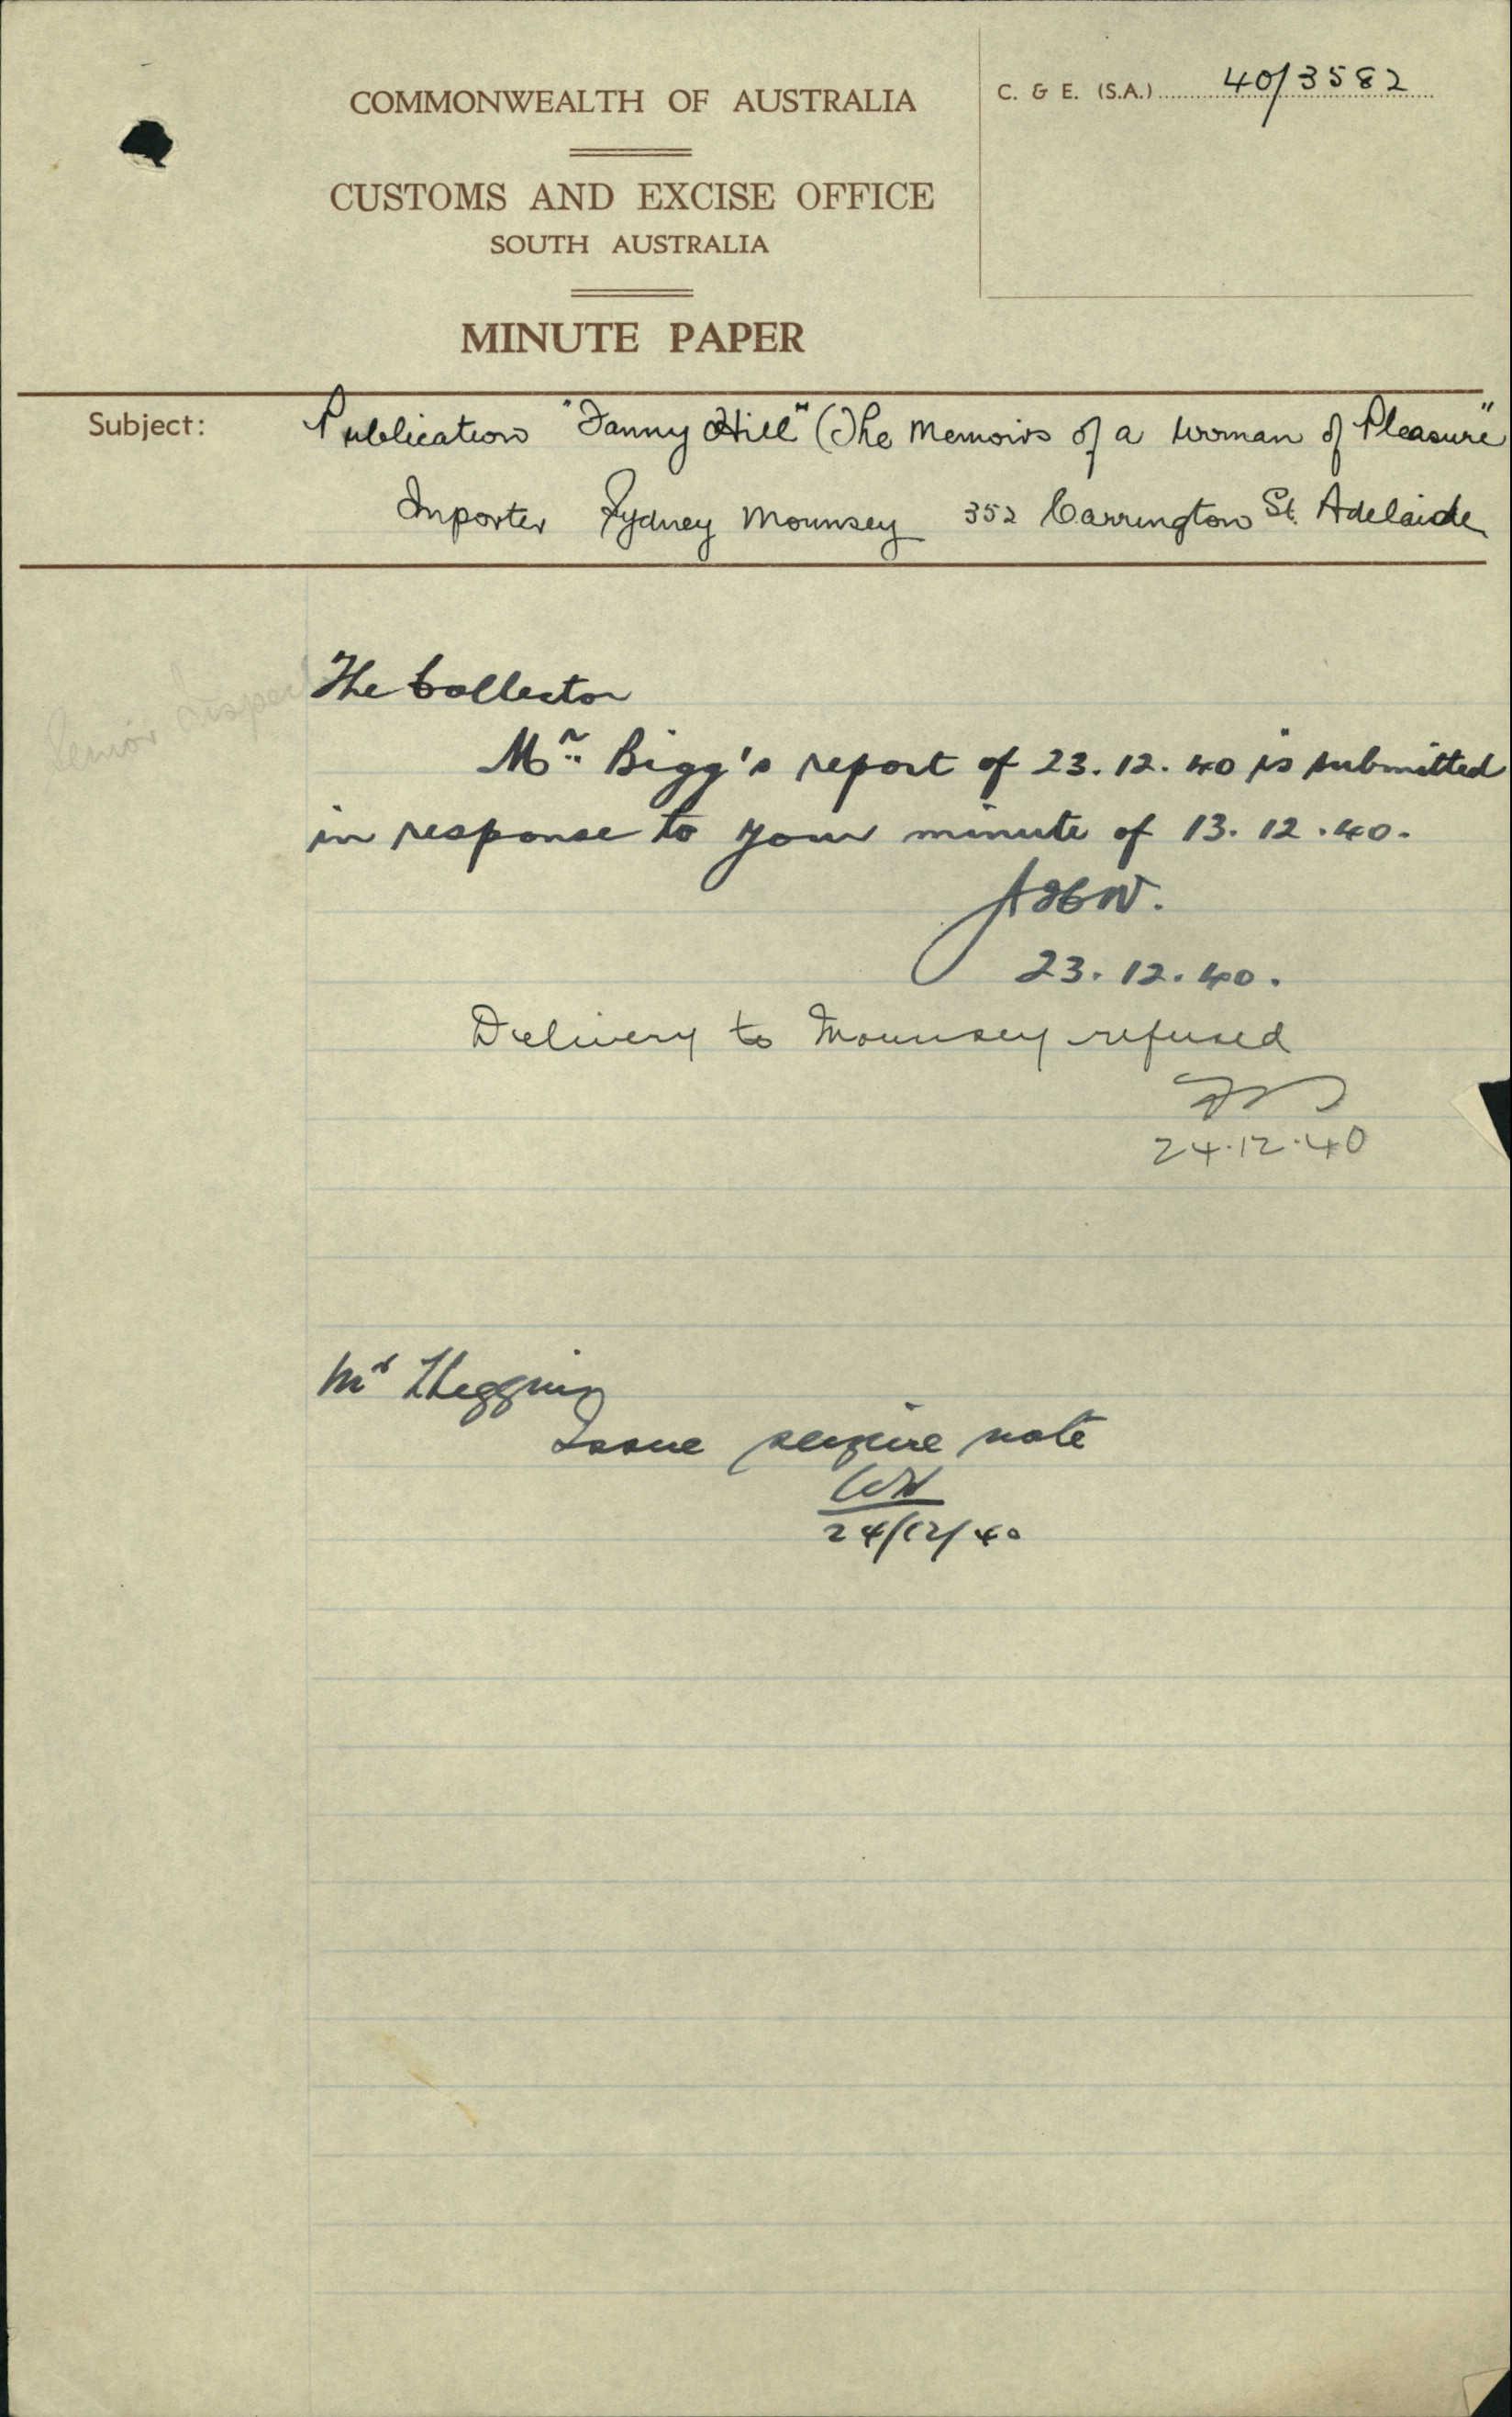 COMMONWEALTH OF AUSTRALIA
C. & E. (S.A.) 40/3582
CUSTOMS AND EXCISE OFFICE
SOUTH AUSTRALIA
MINUTE PAPER
Subject: Publication "Fanny Hill" (The Memoirs of a Woman of Pleasure"
Importer Sydney Mounsey 352 Carrington St. Adelaide
Senior Inspec
The Collector
Mr. Bigg's report of 23.12.40 is submitted
in response to your minute of 13.12.40.
23.12.40.
Delivery to Mounsey refused
24.12.40
Mr
Issue seizure note
24/12/40